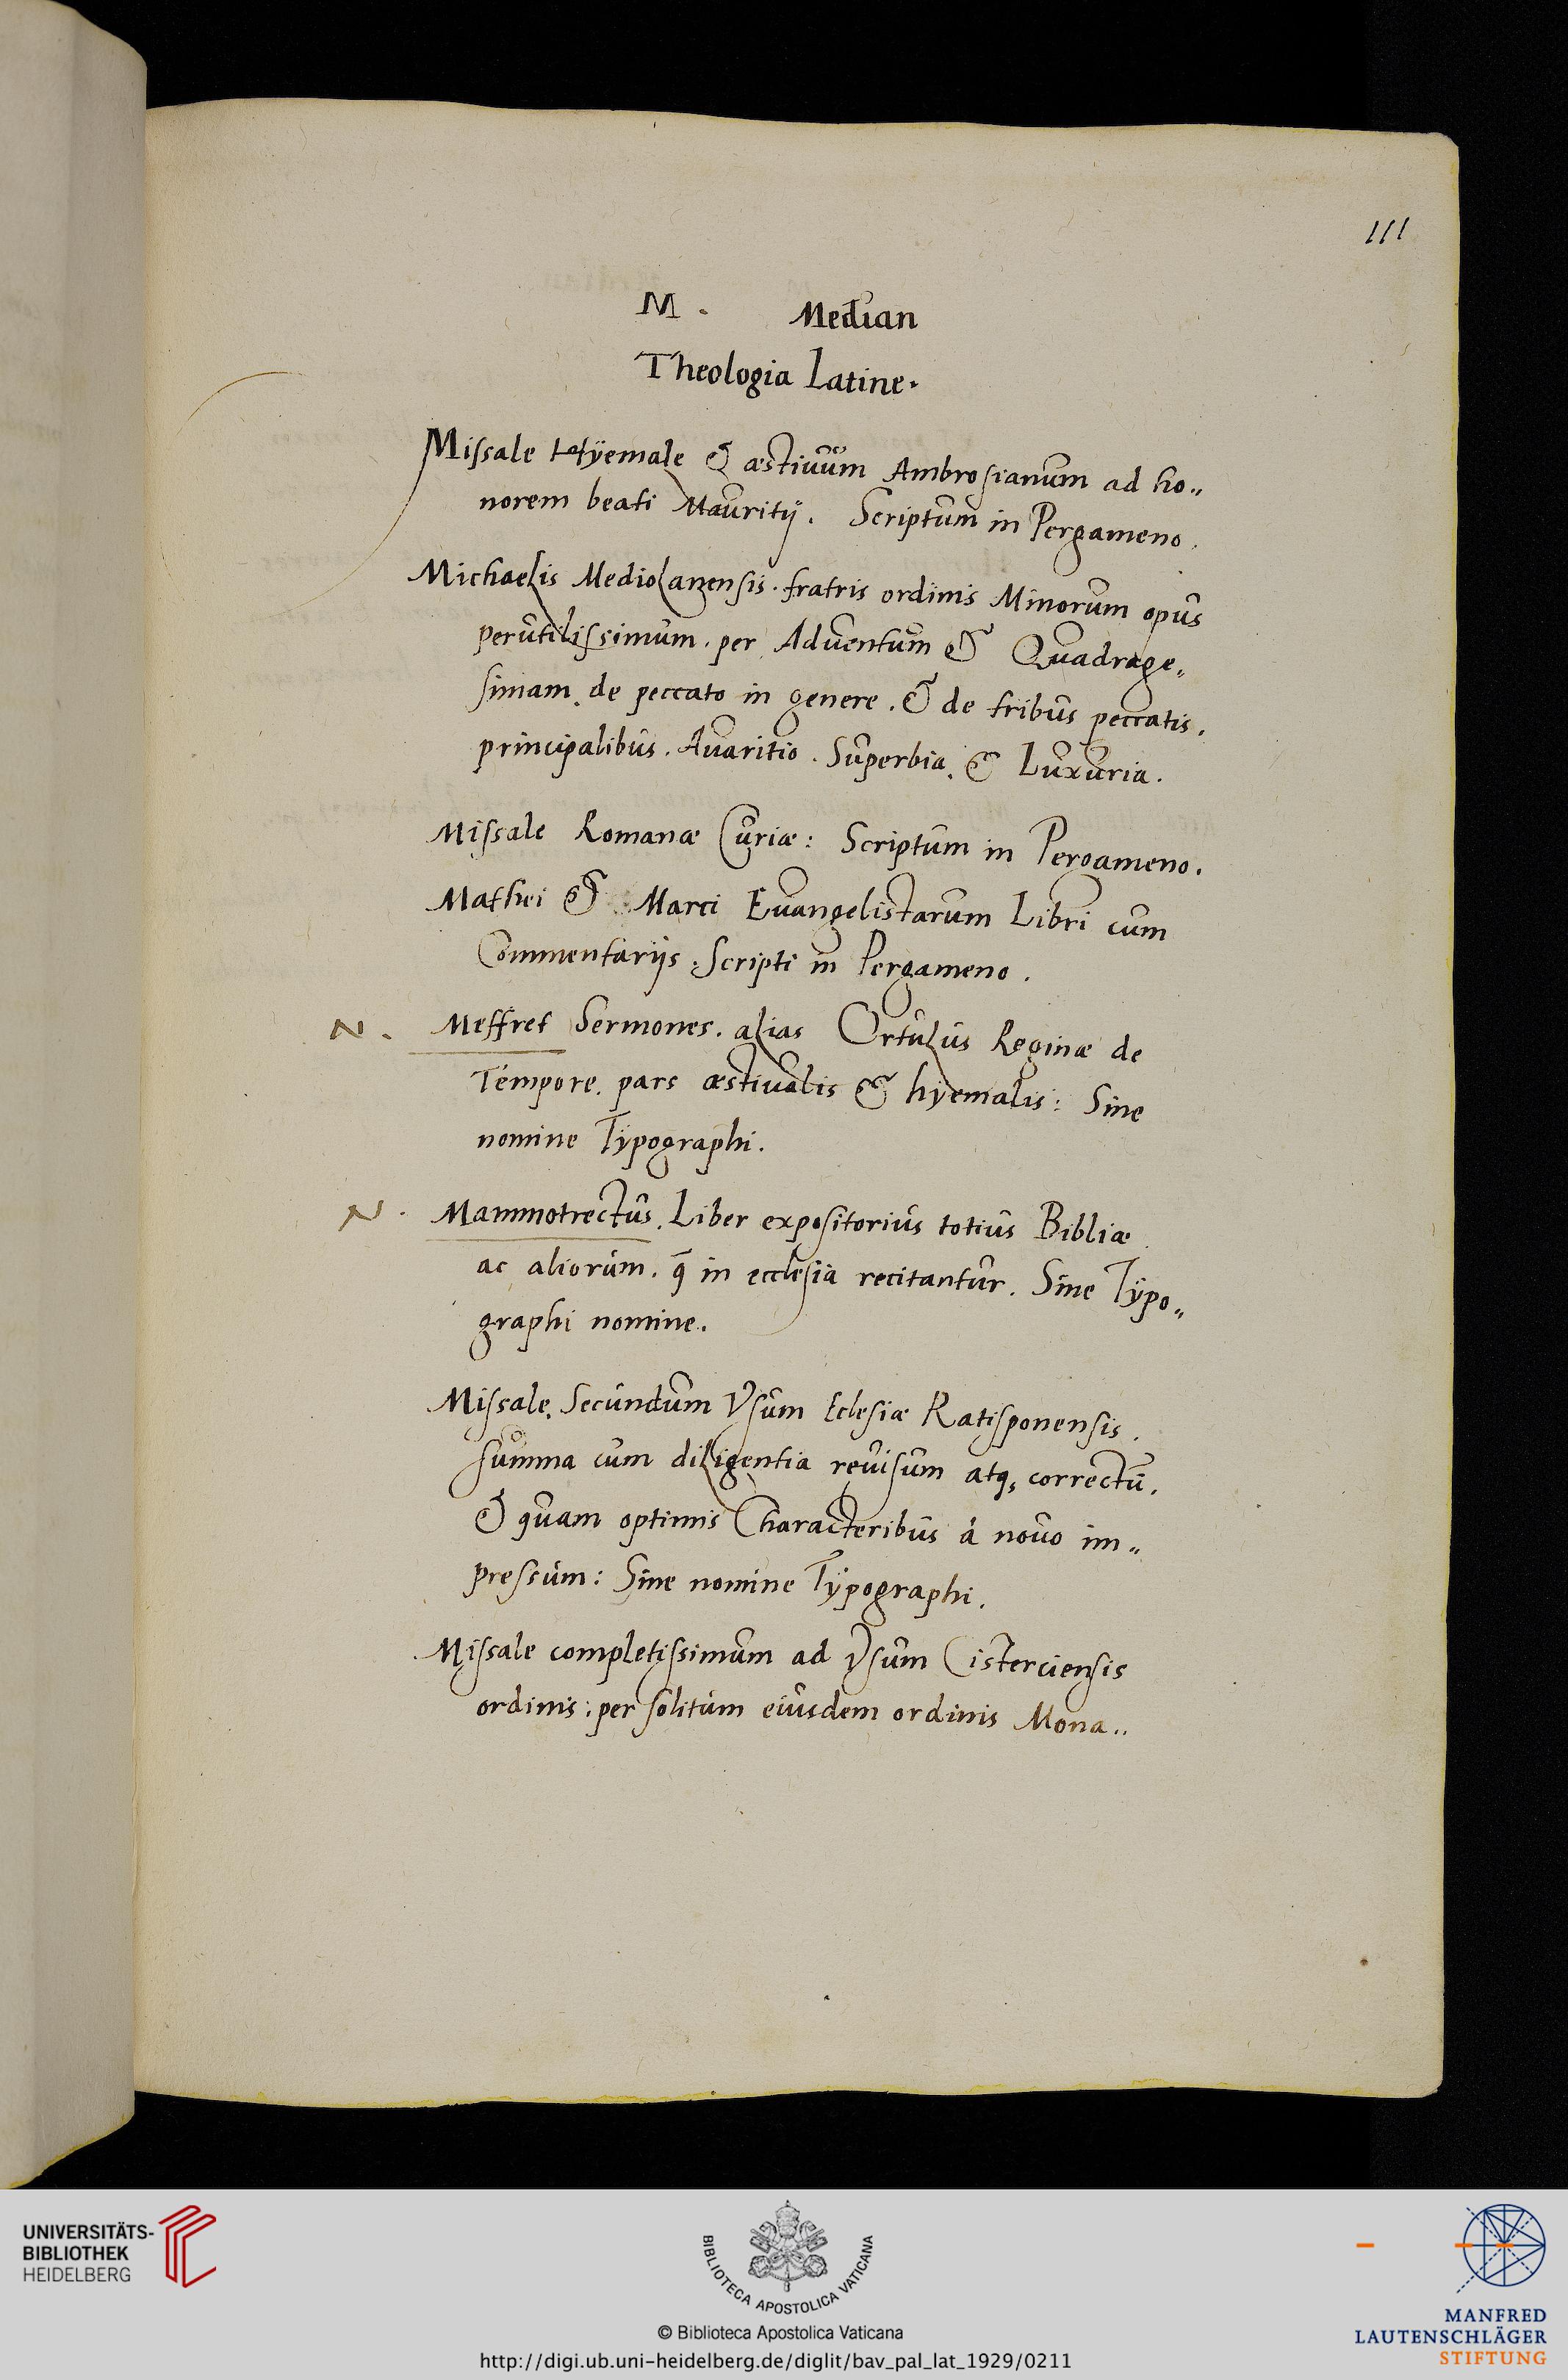 111
M. Median
Theologia Latine.
Missale Hÿemale & æstiuum Ambrosianum ad ho„
norem beati Mauritÿ. Scriptum in Pergameno.
Michaelis Mediolanensis. fratris ordinis Minorum opus
perutilissimum. per Aduentum & Quadrage„
simam. de peccato in genere. & de tribus peccatis.
principalibus. Auaritio. Superbia. & Luxuria.
Missale Romanæ Curiæ: Scriptum in Pergameno.
Mathei & Marci Euangelistarum Libri cum
Commentarijs. Scripti in Pergameno.
N. Meffret Sermones. alias Ortulus Reginæ de
Tempore. pars æstiualis & hyemalis: Sine
nomine Tÿpographi.
N. Mammotrectus. Liber expositorius totius Bibliæ
ac aliorum. q̄ in ecclesia recitantur. Sine Tÿpo„
graphi nomine.
Missale. Secundum Vsum Eclesiæ Ratisponensis.
summa cum diligentia reuisum atq; correctū.
& quam optimis Characteribus à nouo im„
pressum: Sine nomine Tÿpographi.
Missale completissimum ad Vsum Cisterciensis
ordinis: per solitum eiusdem ordinis Mona„
UNIVERSITÄTS-
BIBLIOTHEK
HEIDELBERG
BIBLIOTECA APOSTOLICA VATICANA
© Biblioteca Apostolica Vaticana
http://digi.ub.uni-heidelberg.de/diglit/bav_pal_lat_1929/0211
MANFRED
LAUTENSCHLÄGER
STIFTUNG